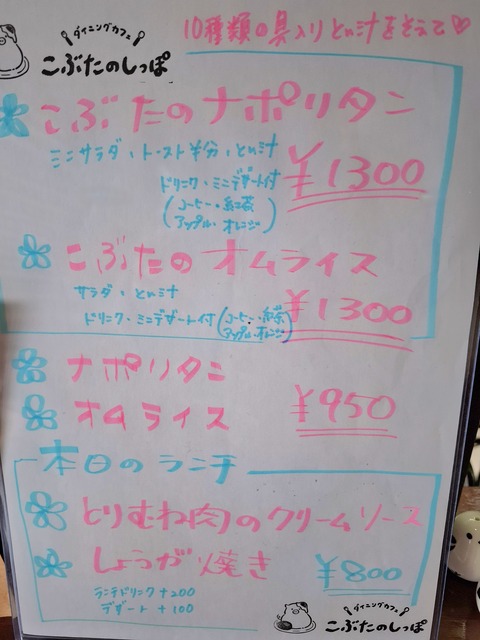 ダイニングカフェ
こぶたのしっぽ
10種類の具入りとん汁をそえて♡
こぶたのナポリタン
ミニサラダ、トースト半分、とん汁
¥1300
ドリンク・ミニデザート付
(コーヒー・紅茶
アップル・オレンジ)
こぶたのオムライス
サラダ、とん汁
¥1300
ドリンク・ミニデザート付(コーヒー・紅茶
アップル・オレンジ)
ナポリタン
オムライス
¥950
本日のランチ
とりむね肉のクリームソース
しょうが焼き
¥800
ランチドリンク+200
デザート+100
ダイニングカフェ
こぶたのしっぽ